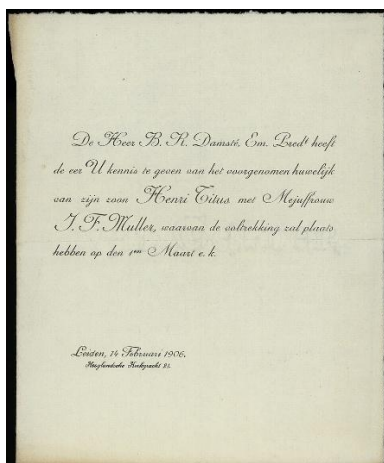 De Heer B. R. Damsté, Em. Predt heeft
de eer U kennis te geven van het voorgenomen huwelijk
van zijn zoon Henri Titus met Mejuffrouw
J. F. Muller, waarvan de voltrekking zal plaats
hebben op den 1en Maart e. k.
Leiden, 14 Februari 1906.
Hooglandsche Kerkgracht